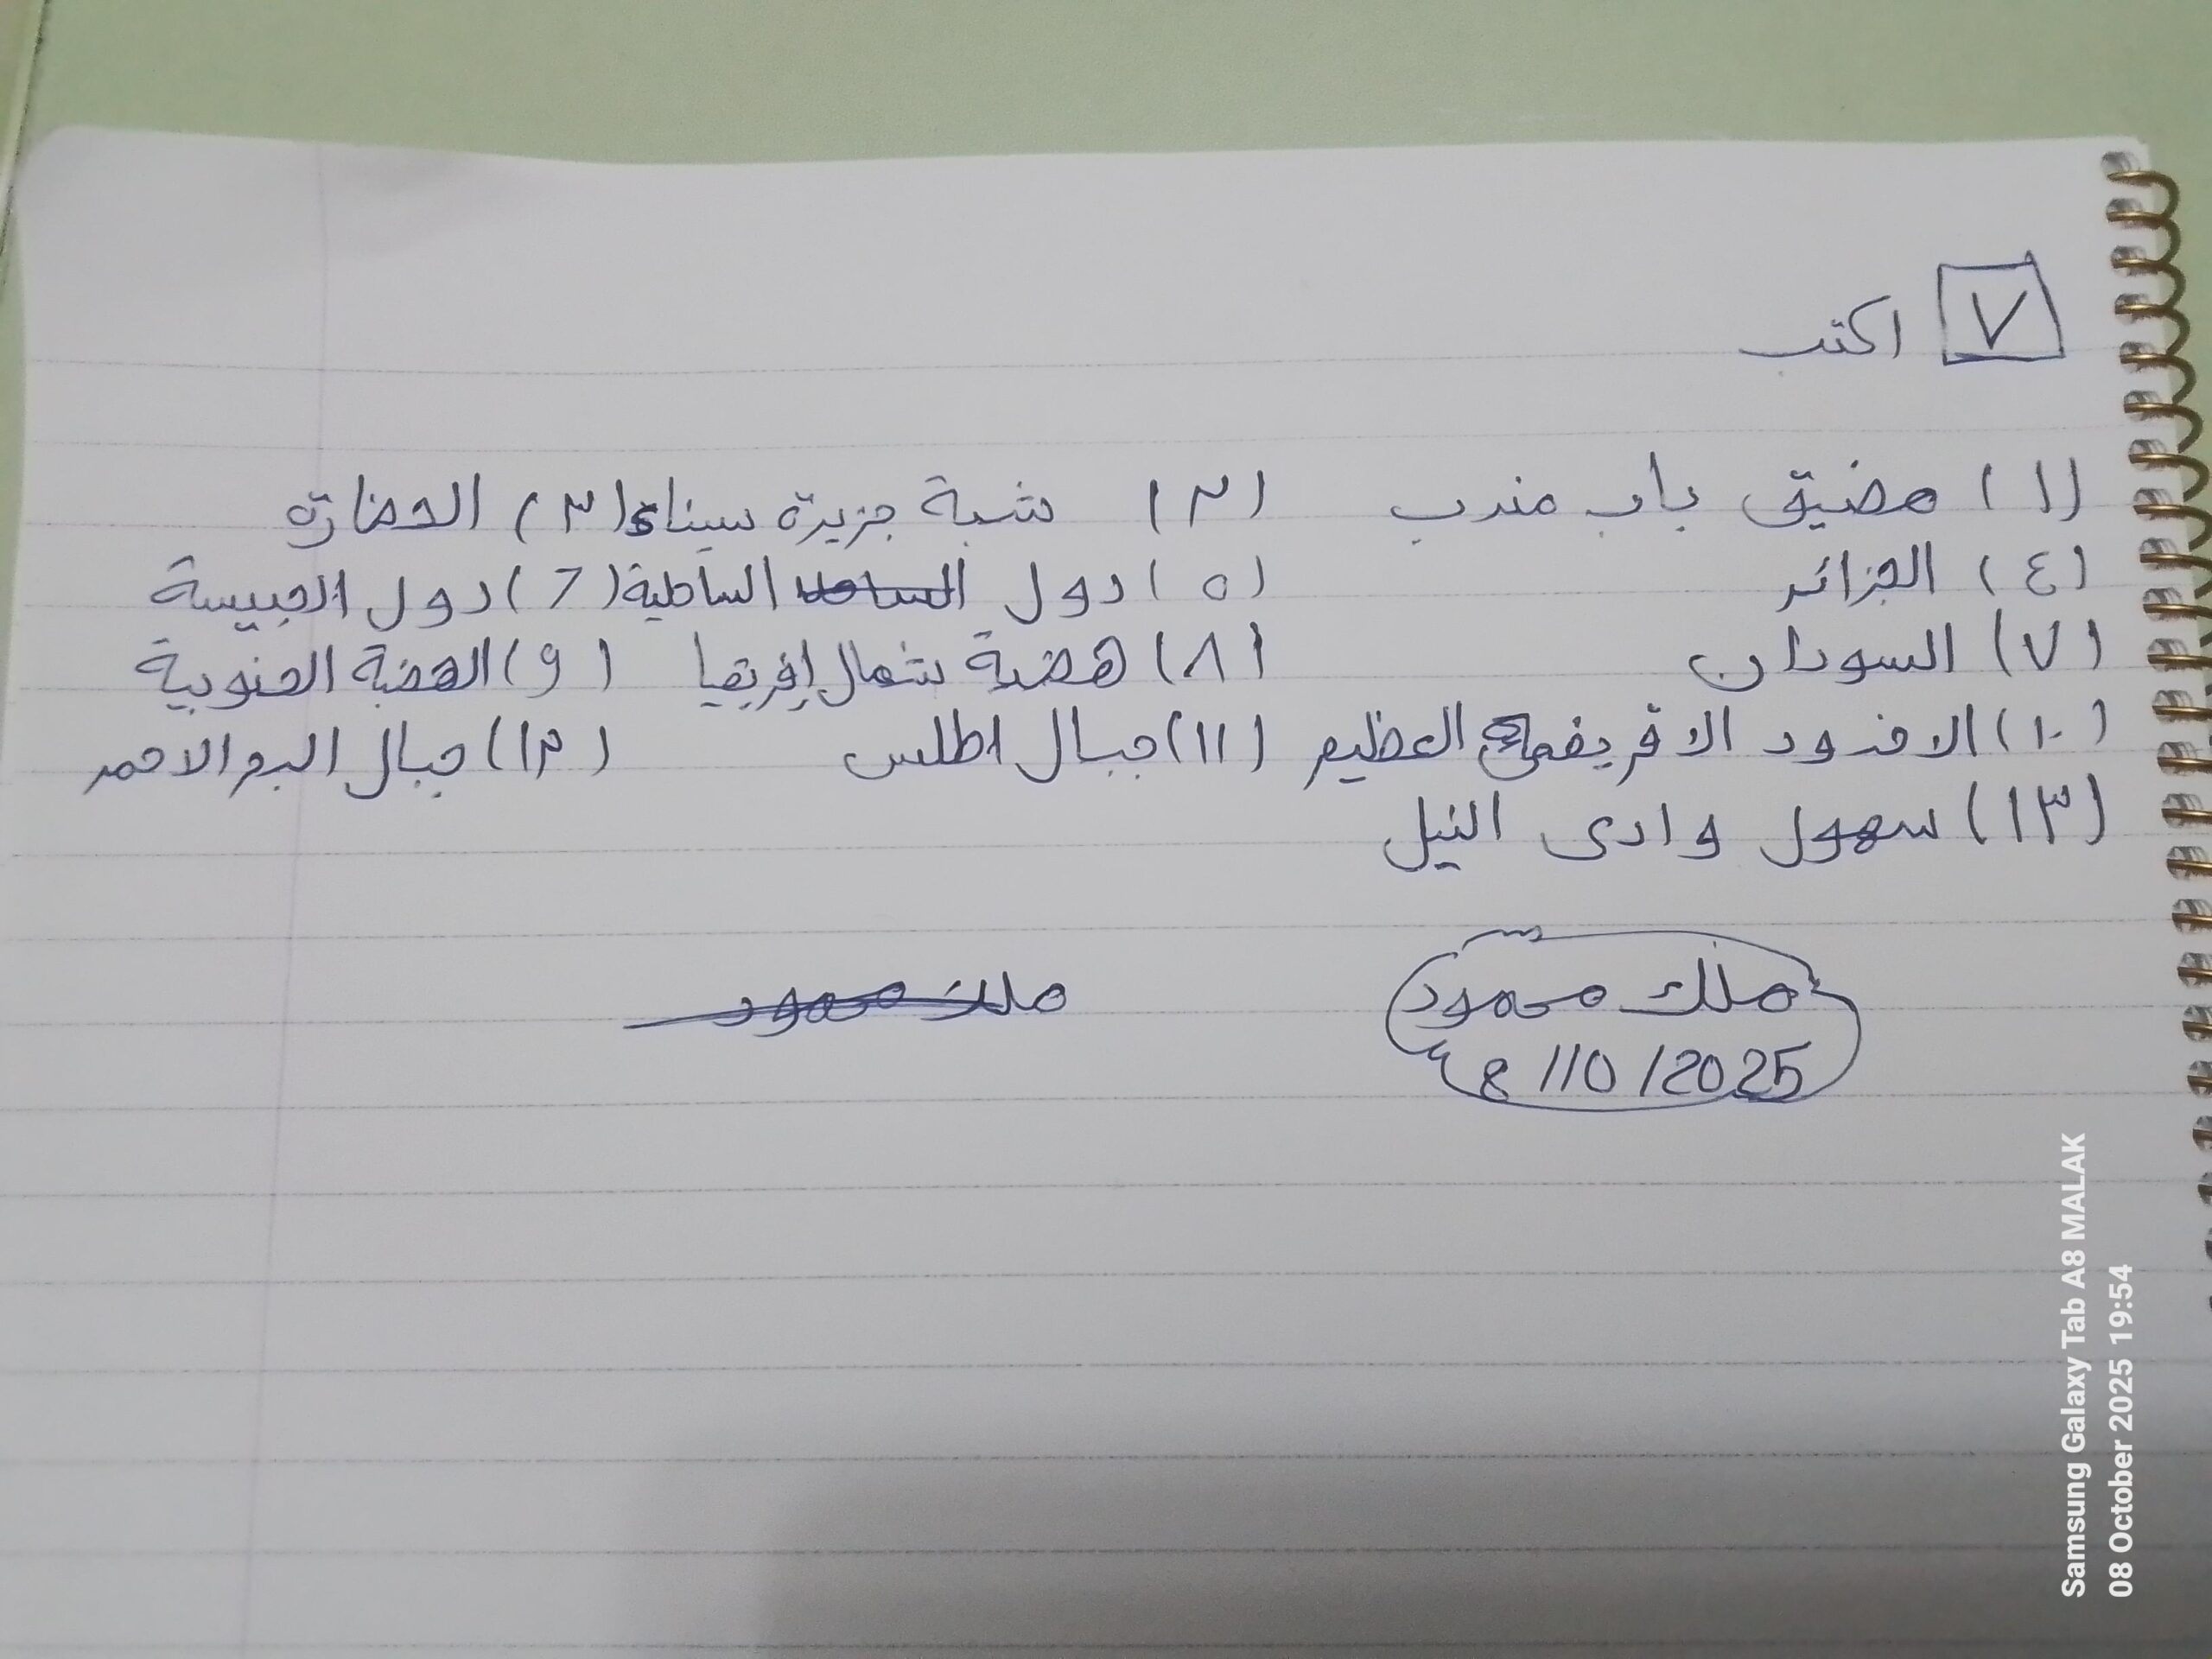 ٧ اكتب
(١) مضيق باب مندب (٢) شبة جزيرة سيناء (٣) الحضارة
(٤) الجزائر (٥) دول الساحلية (6) دول الحبيسة
(٧) السودان (٨) هضبة شمال إفريقيا (9) الهضبة الجنوبية
(١٠) الاخدود الافريقى العظيم (١١) جبال اطلس (١٢) جبال البحر الاحمر
(١٣) سهول وادى النيل
ملك محمود
ملك محمود
8/10/2025
Samsung Galaxy Tab A8 MALAK
08 October 2025 19:54